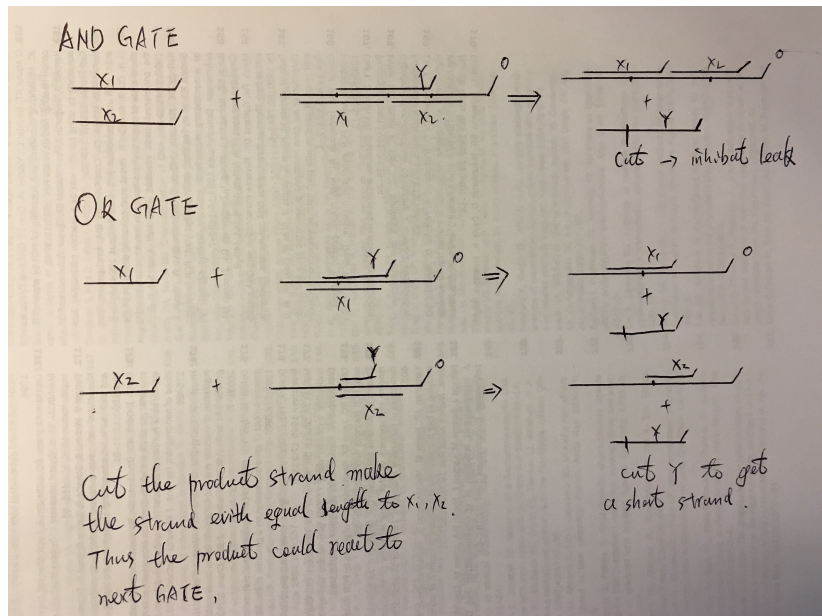 AND GATE
X1
X2
+
Y
O
X1
X2.
⇒
X1
X2
O
+
Y
Cut → inhibat leak
OR GATE
X1
+
Y
O
X1
⇒
X1
O
+
Y
X2
+
Y
O
X2
⇒
X2
+
Y
Cut the product strand make
the strand evith equal length to X1, X2.
Thus the product could reait to
next GATE,
cut Y to get
a short strand.